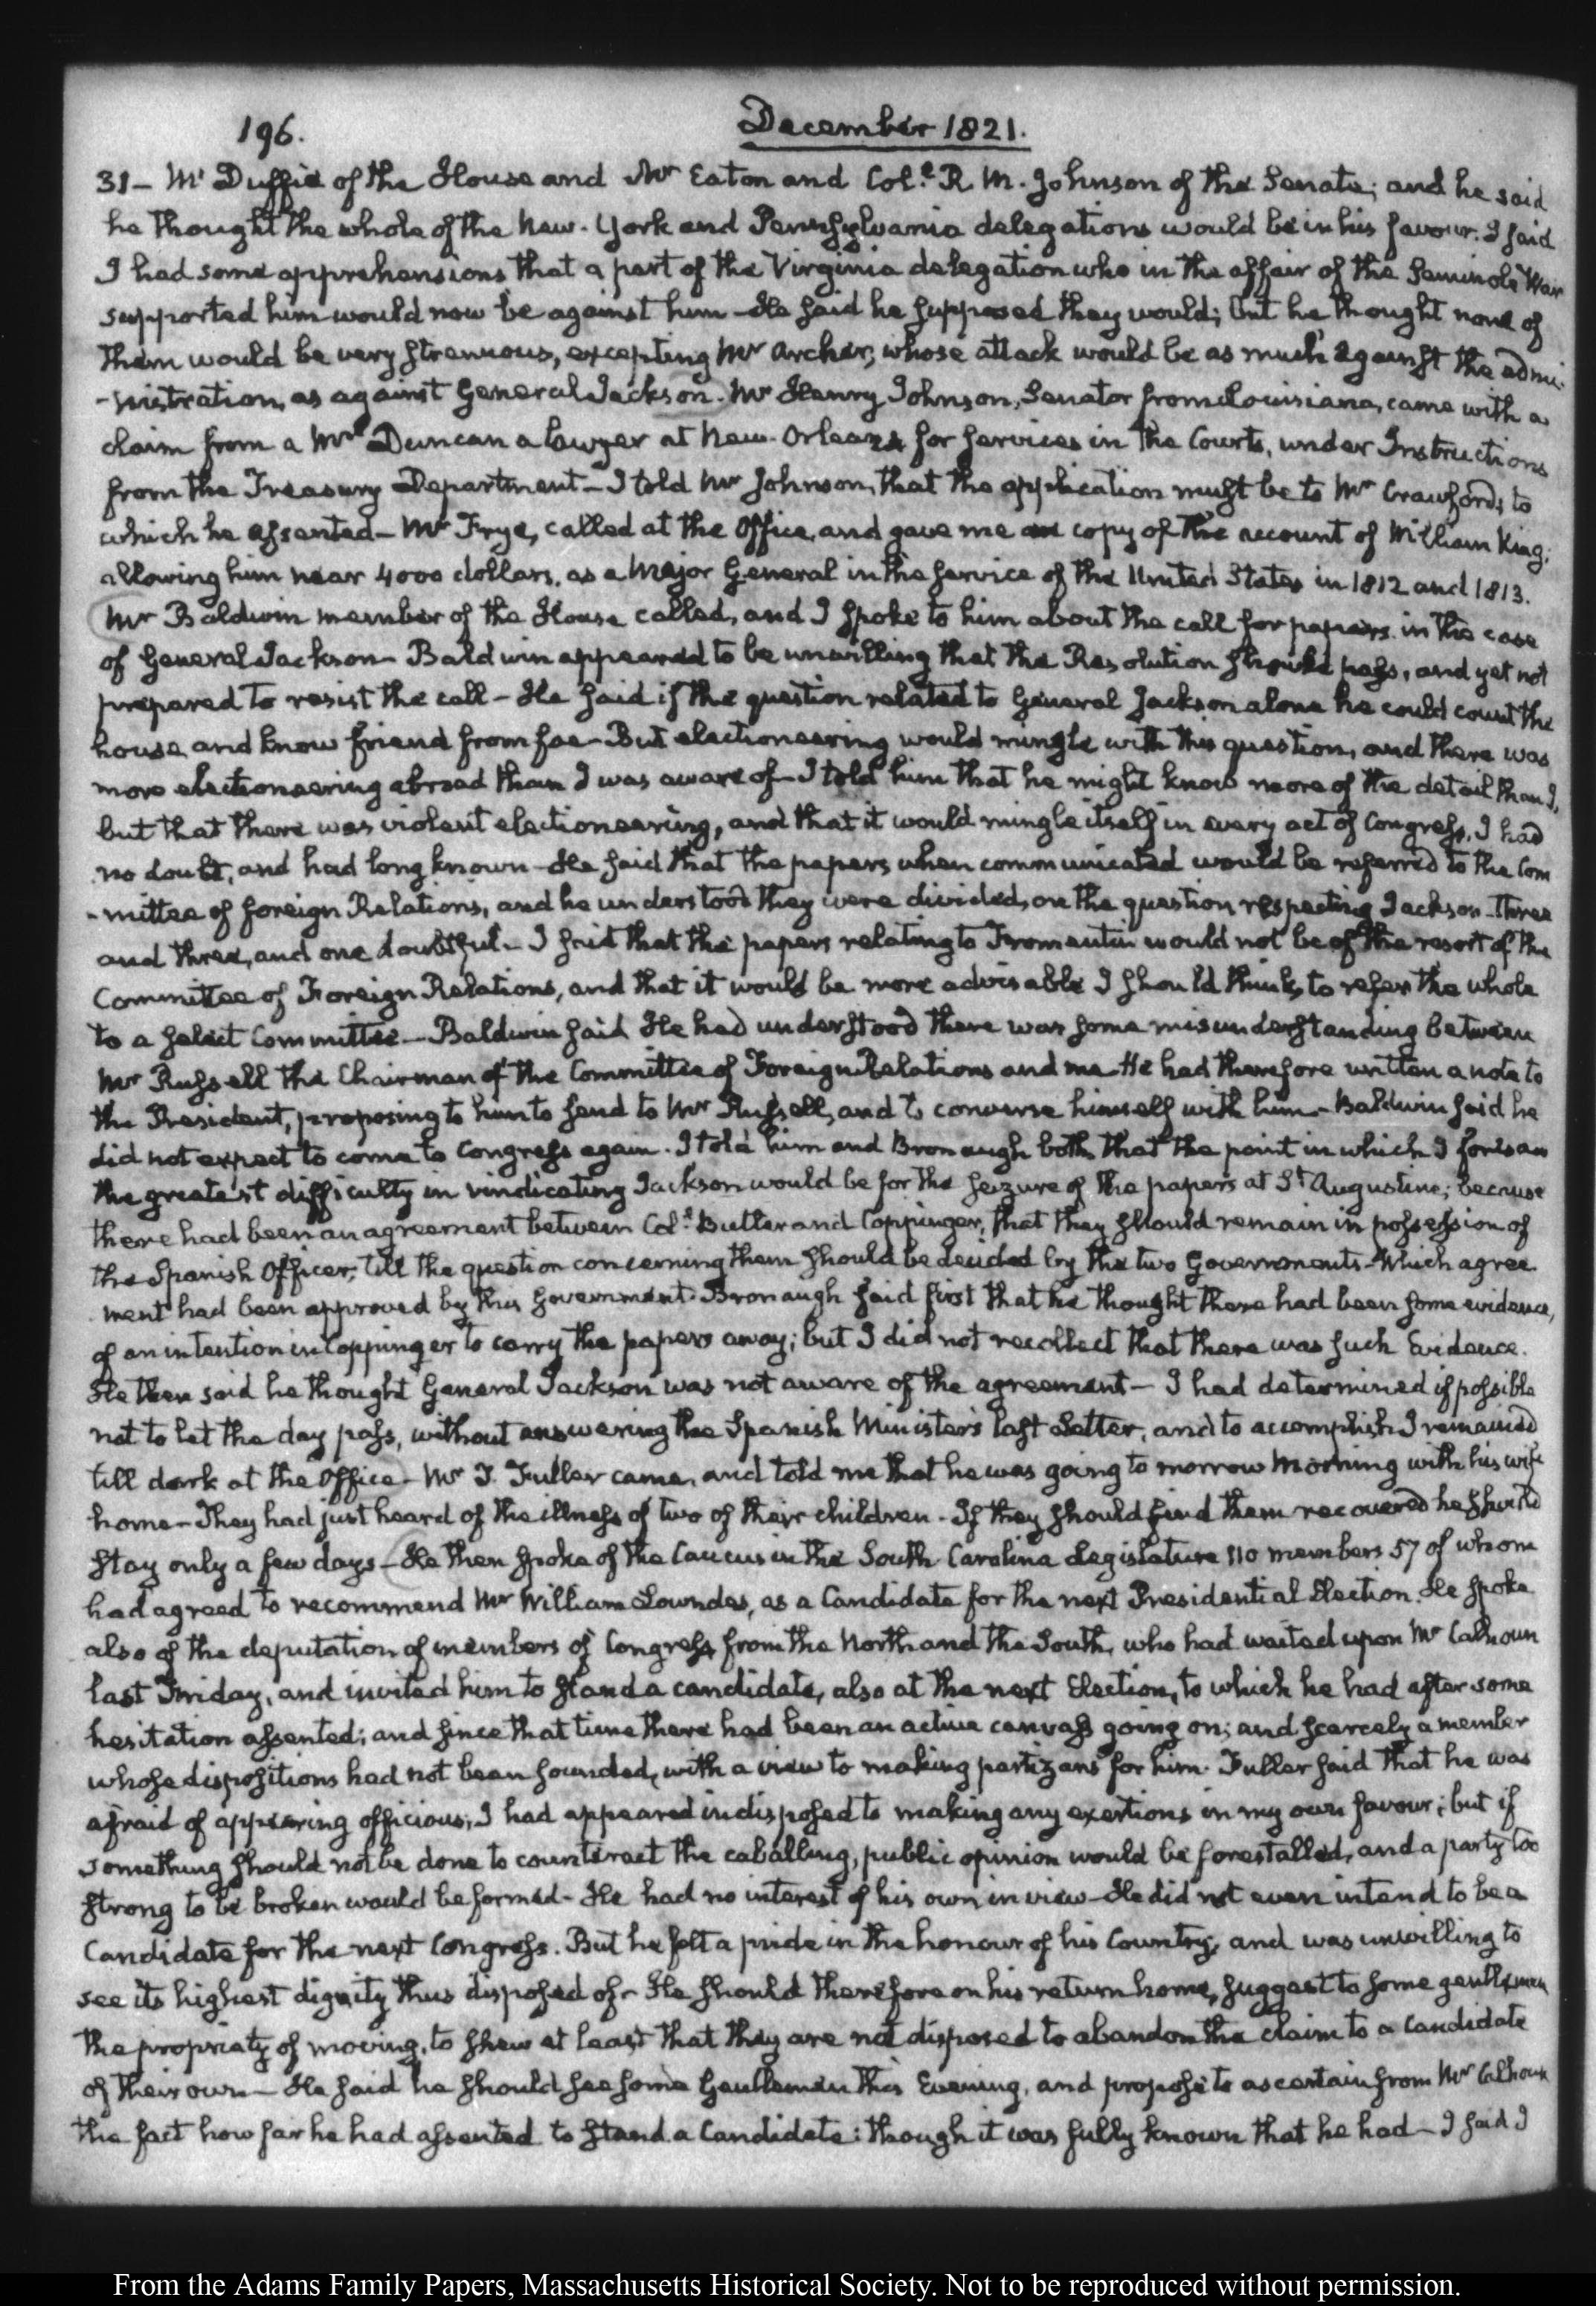 196.
December 1821.
31- McDuffie of the House and Mr Eaton and Col.l R. M. Johnson of the Senate; and he said
he thought the whole of the New-York and Pennsylvania delegations would be in his favour. I said
I had some apprehensions that a part of the Virginia delegation who in the affair of the Seminole War
supported him would now be against him - He said he supposed they would; but he thought none of
them would be very strenuous, excepting Mr Archer, whose attack would be as much against the admi-
-nistration, as against General Jackson. Mr Henry Johnson, Senator from Louisiana, came with a
claim from a Mr Duncan a lawyer at New-Orleans for services in the Courts, under Instructions
from the Treasury Department - I told Mr Johnson, that the application must be to Mr Crawford, to
which he assented - Mr Frye, called at the Office, and gave me a copy of the account of William King;
allowing him near 4000 dollars, as a Major General in the service of the United States in 1812 and 1813.
Mr Baldwin member of the House called, and I spoke to him about the call for papers in the case
of General Jackson - Baldwin appeared to be unwilling that the Resolution should pass, and yet not
prepared to resist the call - He said if the question related to General Jackson alone he could count the
house and know friend from foe - But electioneering would mingle with this question, and there was
more electioneering abroad than I was aware of - I told him that he might know more of the detail than I,
but that there was violent electioneering, and that it would mingle itself in every act of Congress, I had
no doubt, and had long known - He said that the papers when communicated would be referred to the Com
-mittee of foreign Relations, and he understood they were divided, on the question respecting Jackson - Three
and three, and one doubtful - I said that the papers relating to Fromentin would not be of the resort of the
Committee of Foreign Relations, and that it would be more advisable I should think, to refer the whole
to a select Committee - Baldwin said He had understood there was some misunderstanding between
Mr Russell the Chairman of the Committee of Foreign Relations and me - He had therefore written a note to
the President, proposing to him to send to Mr Russell, and to converse himself with him - Baldwin said he
did not expect to come to Congress again. I told him and Bronaugh both, that the point in which I foresaw
the greatest difficulty in vindicating Jackson would be for the seizure of the papers at St Augustine; because
there had been an agreement between Col.l Butler and Coppinger, that they should remain in possession of
the Spanish Officer, till the question concerning them should be decided by the two Governments - Which agree
ment had been approved by this Government. Bronaugh said first that he thought there had been some evidence,
of an intention in Coppinger to carry the papers away; but I did not recollect that there was such Evidence.
He then said he thought General Jackson was not aware of the agreement - I had determined if possible
not to let the day pass, without answering the Spanish Minister's last Letter, and to accomplish I remained
till dark at the Office - Mr T. Fuller came, and told me that he was going to morrow Morning with his wife
home - They had just heard of the illness of two of their children - If they should find them recovered he should
stay only a few days - He then spoke of the Caucus in the South-Carolina Legislature 110 members 57 of whom
had agreed to recommend Mr William Lowndes, as a Candidate for the next Presidential Election. He spoke
also of the deputation of members of Congress from the North and the South, who had waited upon Mr Calhoun
last Friday, and invited him to stand a candidate, also at the next Election, to which he had after some
hesitation assented; and since that time there had been an active canvass going on; and scarcely a member
whose dispositions had not been sounded, with a view to making partizans for him. Fuller said that he was
afraid of appearing officious; I had appeared indisposed to making any exertions in my own favour; but if
something should not be done to counteract the caballing, public opinion would be forestalled, and a party too
strong to be broken would be formed - He had no interest of his own in view - He did not even intend to be a
Candidate for the next Congress. But he felt a pride in the honour of his Country, and was unwilling to
see its highest dignity thus disposed of - He should therefore on his return home, suggest to some gentlemen
the propriety of moving, to shew at least that they are not disposed to abandon the claim to a Candidate
of their own - He said he should see some Gentlemen this Evening, and propose to ascertain from Mr Calhoun
the fact how far he had assented to stand a Candidate: though it was fully known that he had - I said I
From the Adams Family Papers, Massachusetts Historical Society. Not to be reproduced without permission.